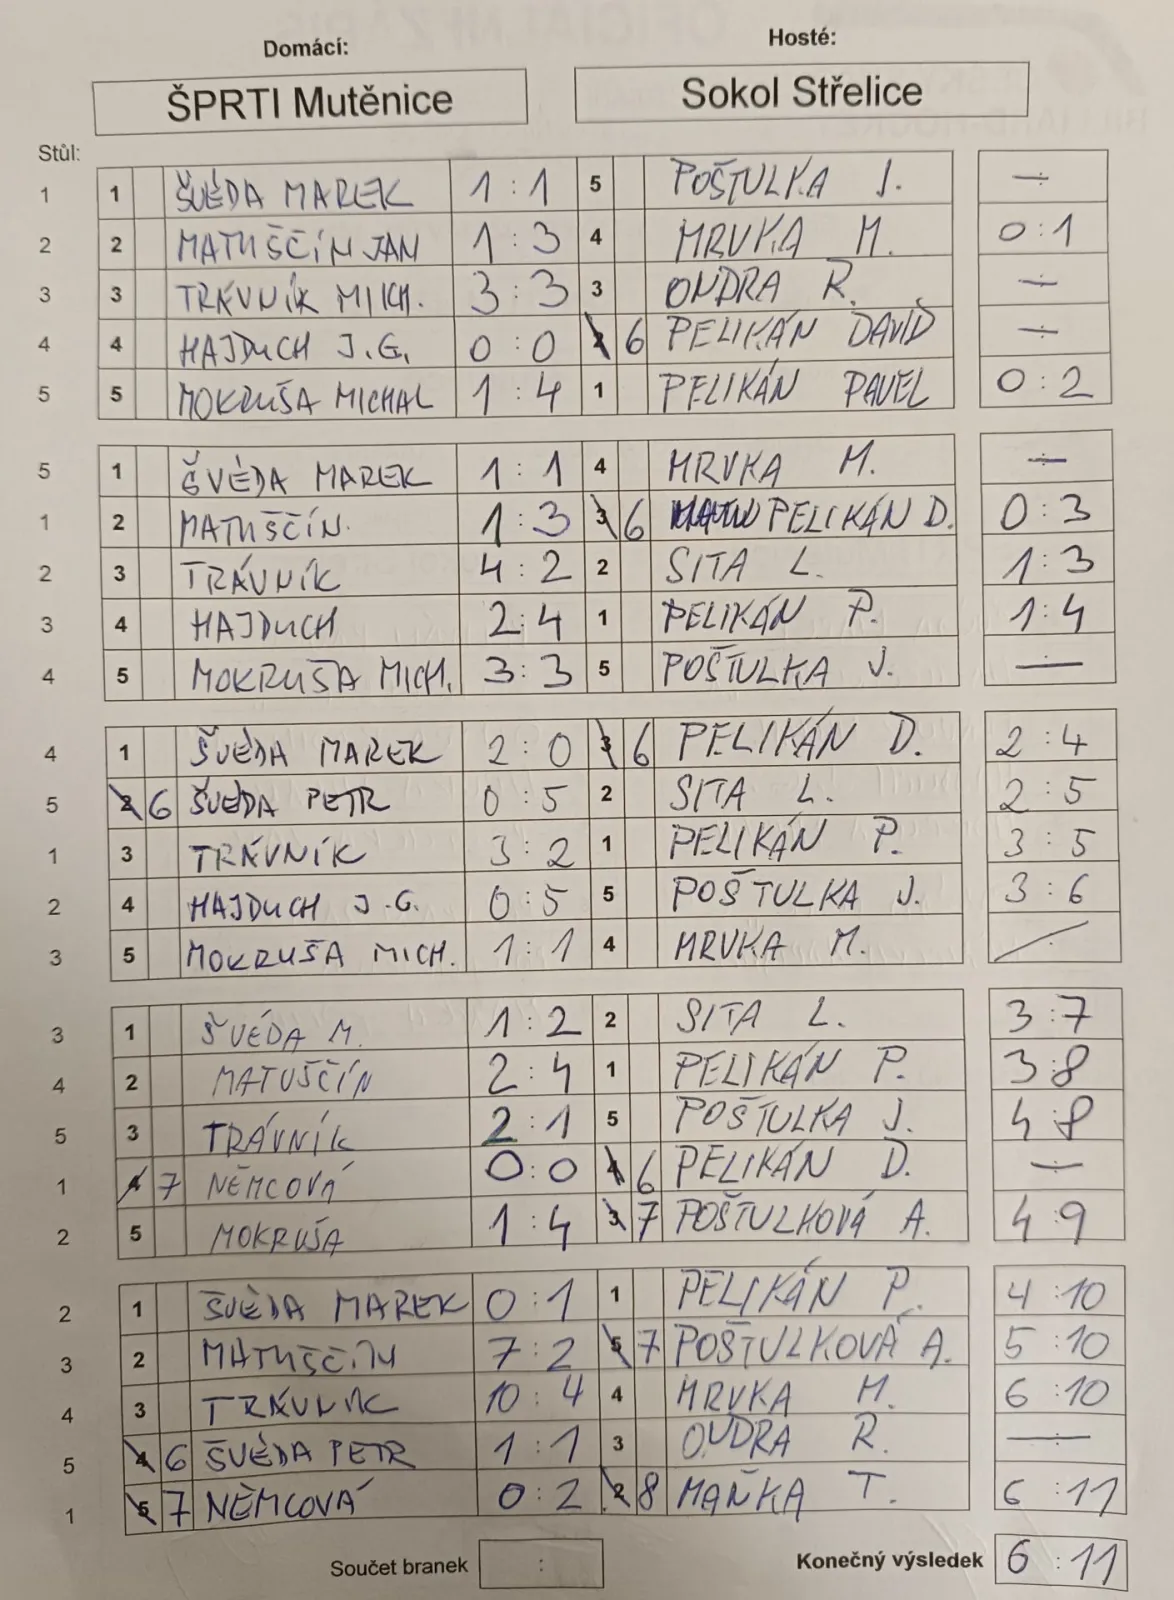 Domácí: Hosté:
ŠPRTI Mutěnice Sokol Střelice
Stůl:
1 1 ŠVÉDA MAREK 1 : 1 5 POŠTULKA J. — : —
2 2 MATUŠČÍN JAN 1 : 3 4 MRVKA M. 0 : 1
3 3 TRÁVNÍK MICH. 3 : 3 3 ONDRA R. — : —
4 4 HAJDUCH J.G. 0 : 0 2 6 PELIKÁN DAVID — : —
5 5 MOKRUŠA MICHAL 1 : 4 1 PELIKÁN PAVEL 0 : 2
5 1 ŠVÉDA MAREK 1 : 1 4 MRVKA M. — : —
1 2 MATUŠČÍN. 1 : 3 3 6 PELIKÁN D. 0 : 3
2 3 TRÁVNÍK 4 : 2 2 SITA L. 1 : 3
3 4 HAJDUCH 2 : 4 1 PELIKÁN P. 1 : 4
4 5 MOKRUŠA MICH. 3 : 3 5 POŠTULKA J. — : —
4 1 ŠVÉDA MAREK 2 : 0 3 6 PELIKÁN D. 2 : 4
5 2 6 ŠVÉDA PETR 0 : 5 2 SITA L. 2 : 5
1 3 TRÁVNÍK 3 : 2 1 PELIKÁN P. 3 : 5
2 4 HAJDUCH J.G. 0 : 5 5 POŠTULKA J. 3 : 6
3 5 MOKRUŠA MICH. 1 : 1 4 MRVKA M. :
3 1 ŠVÉDA M. 1 : 2 2 SITA L. 3 : 7
4 2 MATUŠČÍN 2 : 4 1 PELIKÁN P. 3 : 8
5 3 TRÁVNÍK 2 : 1 5 POŠTULKA J. 4 : 8
1 4 7 NĚMCOVÁ 0 : 0 4 6 PELIKÁN D. — : —
2 5 MOKRUŠA 1 : 4 3 7 POŠTULKOVÁ A. 4 : 9
2 1 ŠVÉDA MAREK 0 : 1 1 PELIKÁN P. 4 : 10
3 2 MATUŠČÍN 7 : 2 5 7 POŠTULKOVÁ A. 5 : 10
4 3 TRÁVNÍK 10 : 4 4 MRVKA M. 6 : 10
5 4 6 ŠVÉDA PETR 1 : 1 3 ONDRA R. — : —
1 5 7 NĚMCOVÁ 0 : 2 2 8 MAŇKA T. 6 : 11
Součet branek : Konečný výsledek 6 : 11